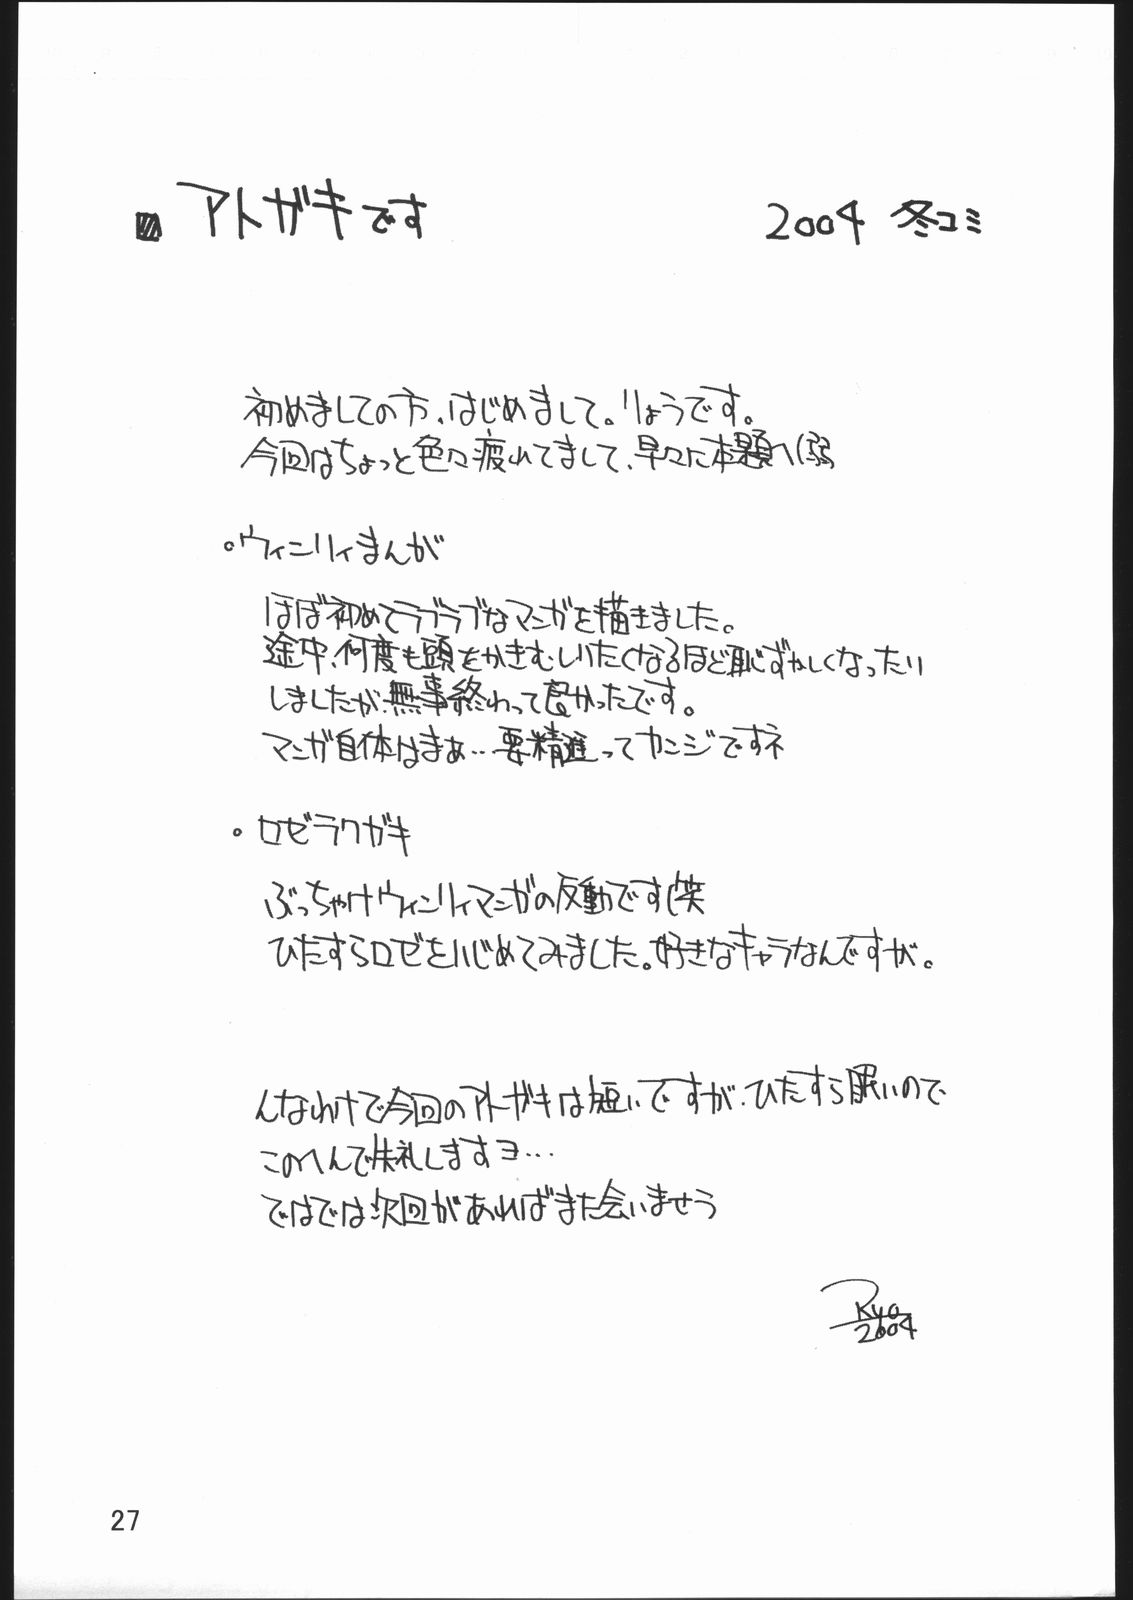 アトガキです
2004 冬コミ
初めましての方、はじめまして。りょうです。
今回はちょっと色々疲れてまして、早々に本題へ(弱
。ウィンリィまんが
ほぼ初めてラブラブなマンガを描きました。
途中、何度も頭をかきむしいたくなるほど恥ずかしくなったり
しましたが、無事終わって良かったです。
マンガ自体はまぁ…要精進ってカンジですネ
。ロゼラクガキ
ぶっちゃけウィンリィマンガの反動です(笑
ひたすらロゼをいじめてみました。好きなキャラなんですが。
んなわけで今回のアトガキは短いですが、ひたすら眠いので
このへんで失礼しますヨ…
ではでは次回があればまた会いませう
Ryo
2004
27